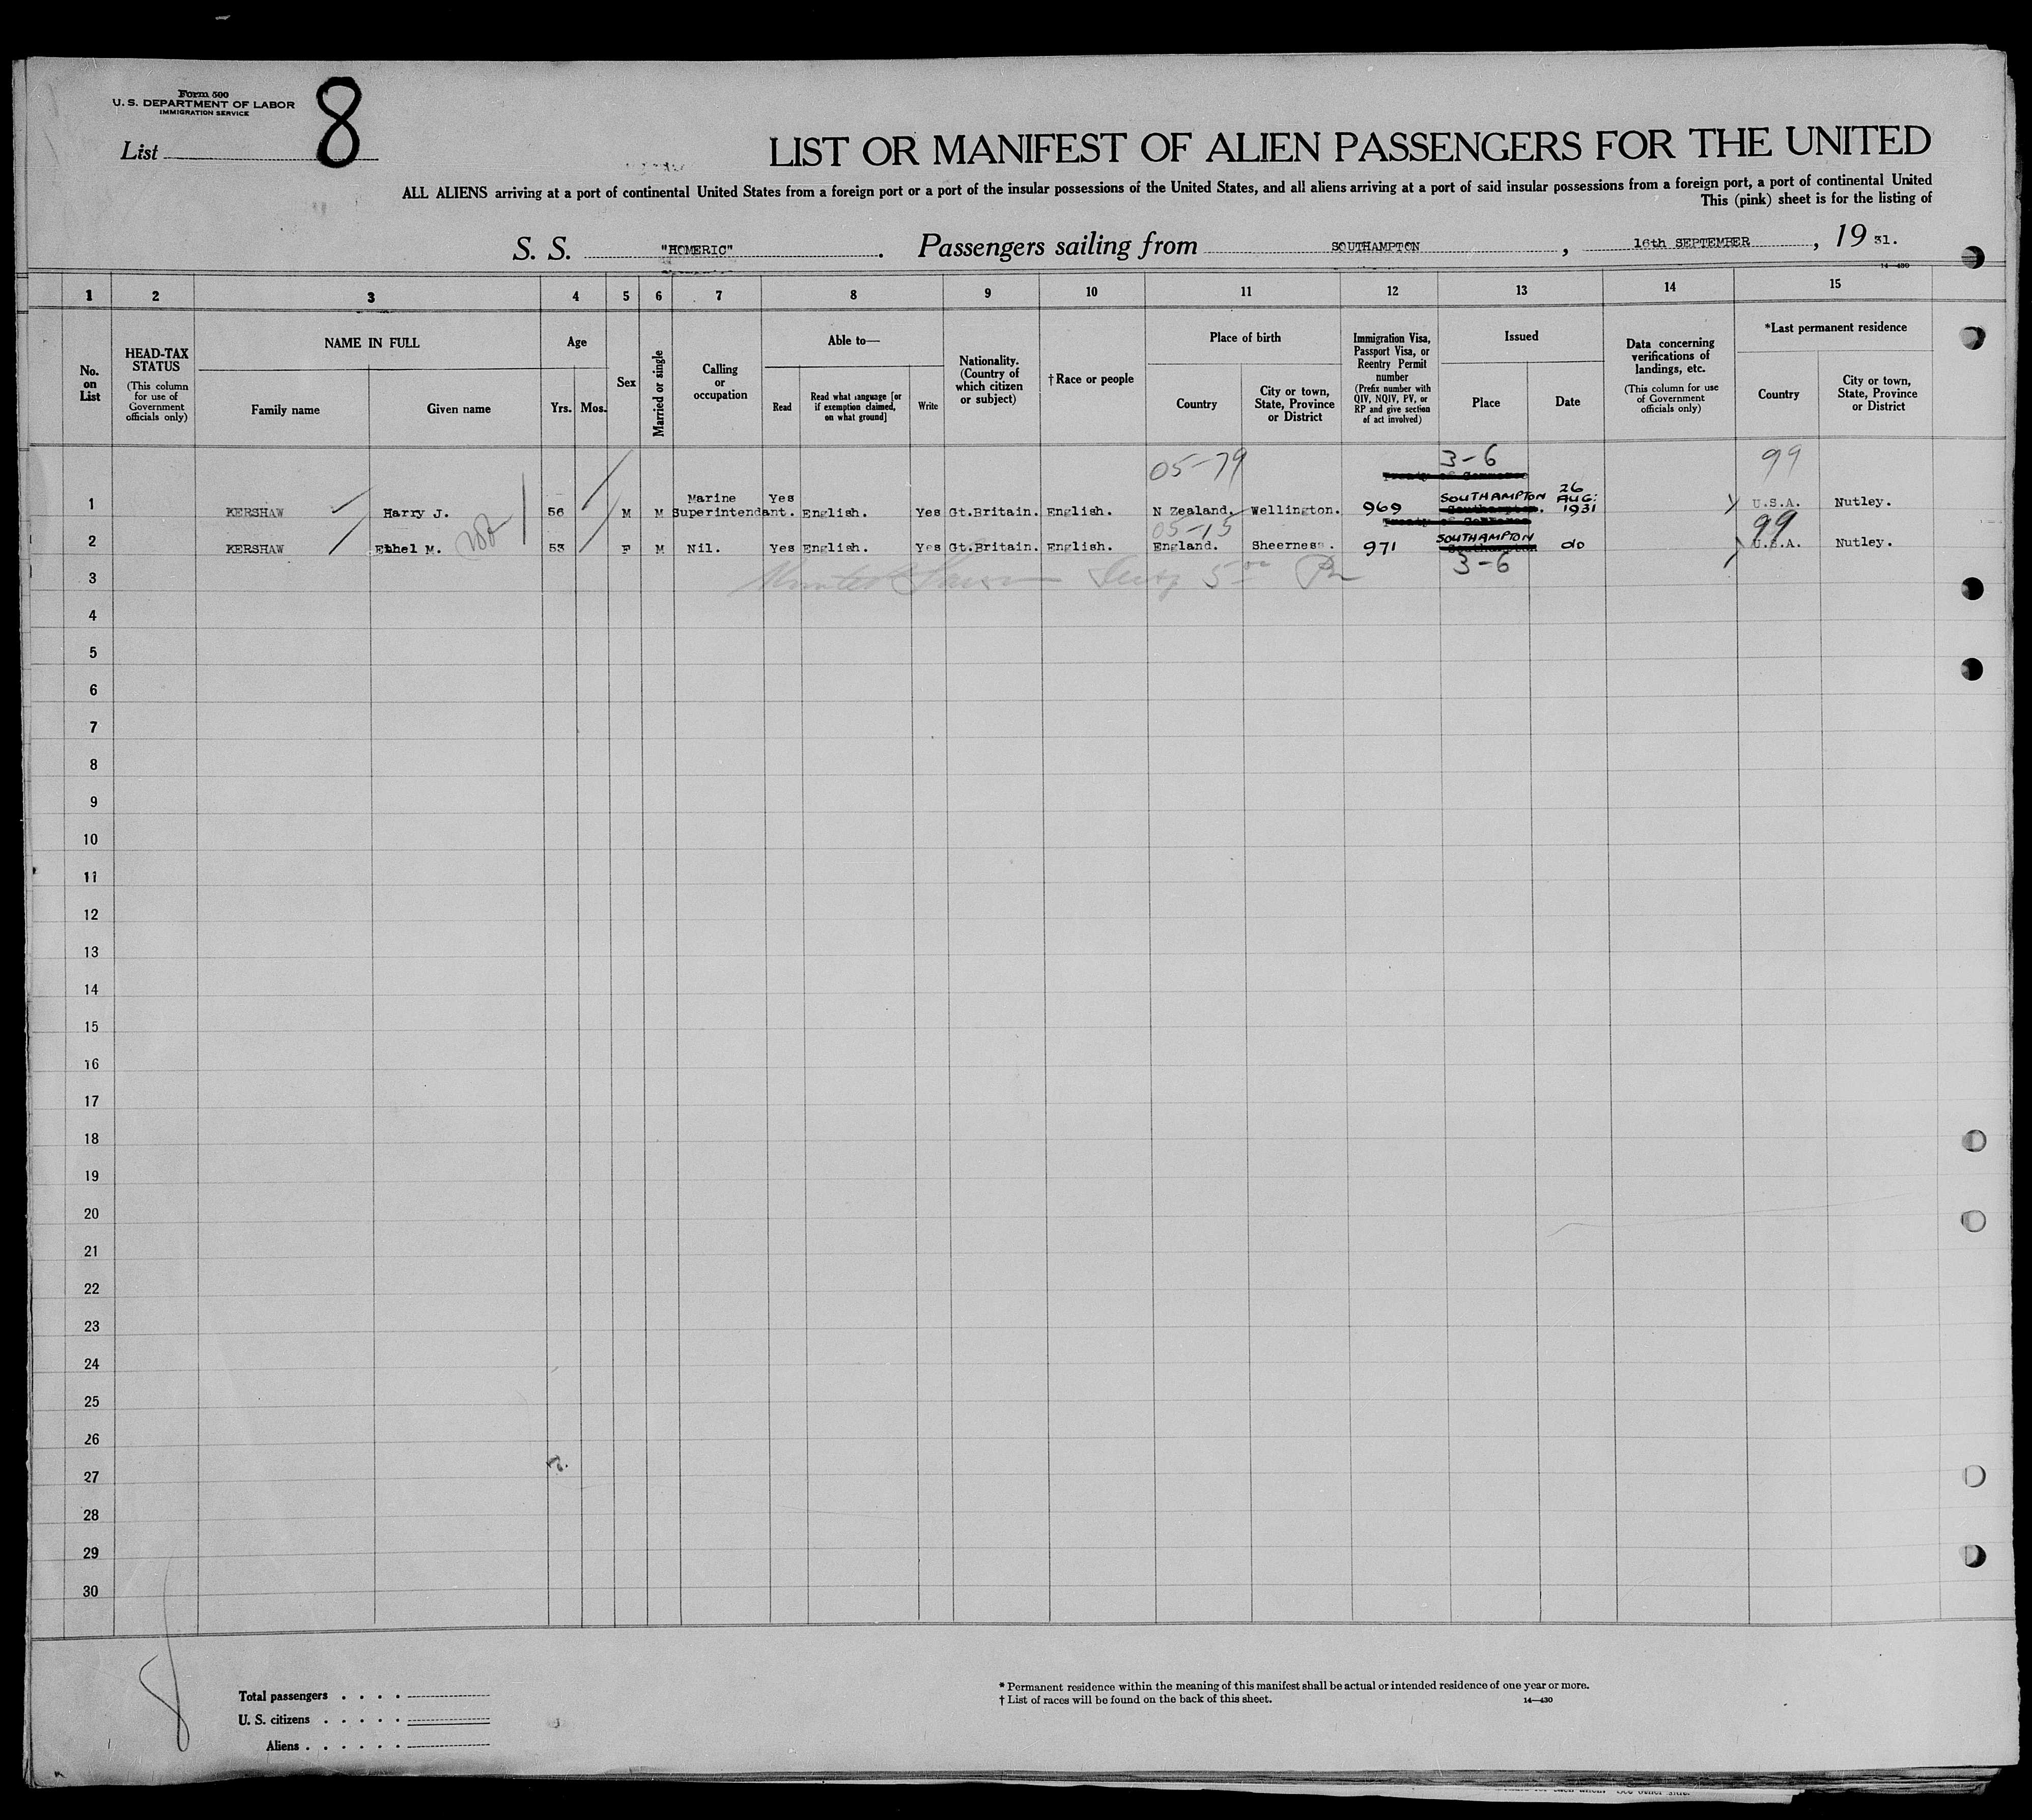 Form 500
U. S. DEPARTMENT OF LABOR
IMMIGRATION SERVICE
List 8
LIST OR MANIFEST OF ALIEN PASSENGERS FOR THE UNITED
ALL ALIENS arriving at a port of continental United States from a foreign port or a port of the insular possessions of the United States, and all aliens arriving at a port of said insular possessions from a foreign port, a port of continental United
This (pink) sheet is for the listing of
S. S. "HOMERIC". Passengers sailing from SOUTHAMPTON, 16th SEPTEMBER, 1931.
14—430
1 2 3 4 5 6 7 8 9 10 11 12 13 14 15
No. on List
HEAD-TAX STATUS (This column for use of Government officials only)
NAME IN FULL
Family name
Given name
Age
Yrs. Mos.
Sex
Married or single
Calling or occupation
Able to—
Read
Read what language [or if exemption claimed, on what ground]
Write
Nationality. (Country of which citizen or subject)
† Race or people
Place of birth
Country
City or town, State, Province or District
Immigration Visa, Passport Visa, or Reentry Permit number (Prefix number with QIV, NQIV, PV, or RP and give section of act involved)
Issued
Place
Date
Data concerning verifications of landings, etc. (This column for use of Government officials only)
*Last permanent residence
Country
City or town, State, Province or District
05-79 3-6 99
Treaty of Commerce
1 KERSHAW Harry J. 56 M M Marine Superintendant. Yes English. Yes Gt.Britain. English. N Zealand. Wellington. 969 SOUTHAMPTON Southampton. 26 AUG: 1931 U.S.A. Nutley.
05-15 Treaty of Commerce 99
2 KERSHAW Ethel M. 53 F M Nil. Yes English. Yes Gt.Britain. English. England. Sheerness. 971 SOUTHAMPTON Southampton do U.S.A. Nutley.
3 3-6
4
5
6
7
8
9
10
11
12
13
14
15
16
17
18
19
20
21
22
23
24
25
26
27
28
29
30
8
Total passengers . . . .
U. S. citizens . . . . .
Aliens . . . . . .
* Permanent residence within the meaning of this manifest shall be actual or intended residence of one year or more.
† List of races will be found on the back of this sheet.
14—430